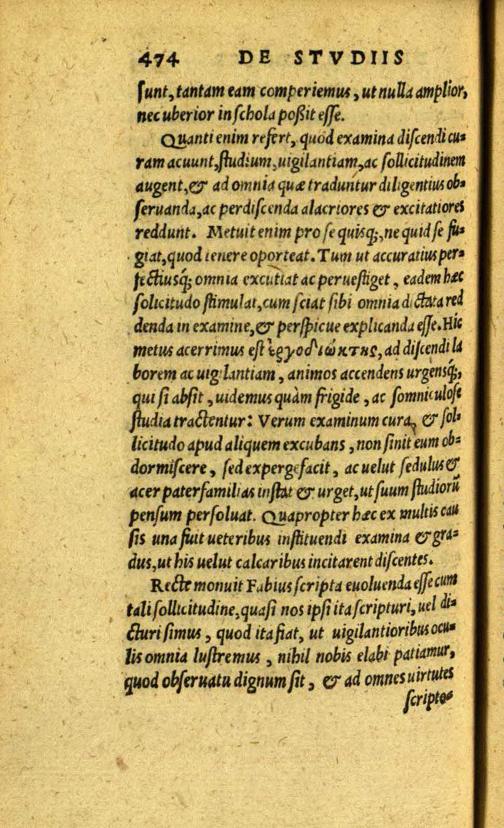 474 DE STVDIIS
sunt, tantam eam comperiemus, ut nulla amplior,
nec uberior in schola poßit esse.
Quanti enim refert, quòd examina discendi cu=
ram acuunt, studium, uigilantiam, ac sollicitudinem
augent, & ad omnia quæ traduntur diligentius ob=
seruanda, ac perdiscenda alacriores & excitatiores
reddunt. Metuit enim pro se quisq;, ne quid se fu=
giat, quod tenere oporteat. Tum ut accuratius per=
fectiusq́; omnia excutiat ac peruestiget, eadem hæc
solicitudo stimulat, cum sciat sibi omnia dictata red
denda in examine, & perspicue explicanda esse. Hic
metus acerrimus est ἐργοδιώκτης, ad discendi la
borem ac uigilantiam, animos accendens urgensq́;,
qui si absit, uidemus quàm frigide, ac somniculose
studia tractentur: Verum examinum cura, & sol=
licitudo apud aliquem excubans, non sinit eum ob=
dormiscere, sed expergefacit, ac uelut sedulus &
acer paterfamilias instat & urget, ut suum studiorũ
pensum persoluat. Quapropter hæc ex multis cau
sis una fuit ueteribus instituendi examina & gra=
dus, ut his uelut calcaribus incitarent discentes.
Recte monuit Fabius scripta euoluenda esse cum
tali sollicitudine, quasi nos ipsi ita scripturi, uel di=
cturi simus, quod ita fiat, ut uigilantioribus ocu=
lis omnia lustremus, nihil nobis elabi patiamur,
quod obseruatu dignum sit, & ad omnes uirtutes
scripto=